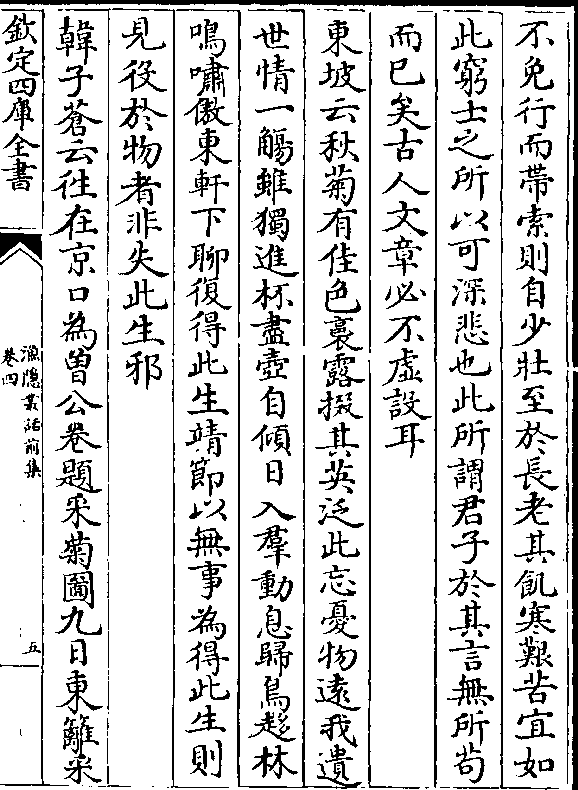 不免行而帶索則自少壯至於長老其飢寒艱苦宜如
此窮士之所以可深悲也此所謂君子於其言無所茍
而已矣古人文章必不虛設耳
東坡云秋菊有佳色裛露掇其英泛此忘憂物逺我遺
世情一觴雖獨進杯盡壺自傾日入羣動息歸鳥趨林
鳴嘯傲東軒下聊復得此生靖節以無事為得此生則
見役於物者非失此生邪
韓子蒼云徃在京口為曽公卷題采菊圖九日東籬采
欽定四庫全書
漁隠叢話前集
卷四
五